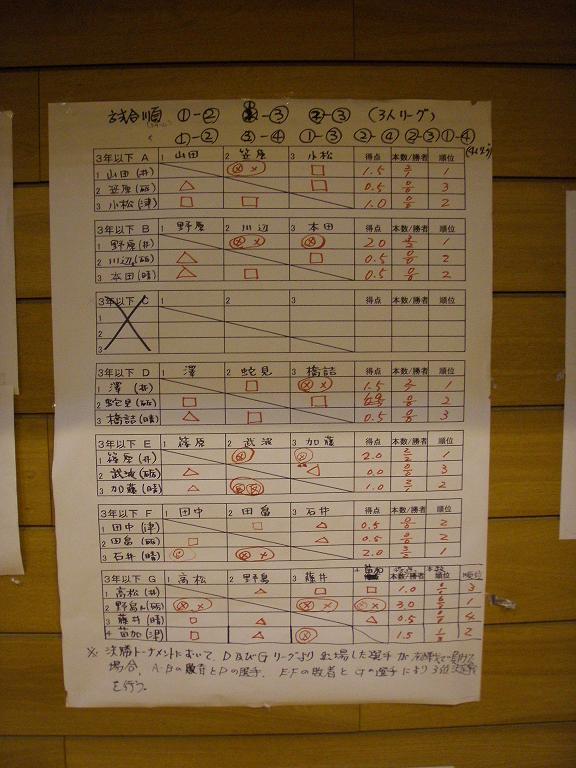 試合順 ①-② ①-③ ②-③ (3人リーグ)
①-② ③-④ ①-③ ②-④ ②-③ ①-④ (4人リーグ)
3年以下 A 1 山田 2 笠原 3 小松 得点 本数/勝者 順位
1 山田(井) ⊗× □ 1.5 2/1 1
2 笠原(砺) △ □ 0.5 0/0 3
3 小松(津) □ □ 1.0 0/0 2
3年以下 B 1 野原 2 川辺 3 本田 得点 本数/勝者 順位
1 野原(井) ⊗× ⊗ 2.0 3/2 1
2 川辺(砺) △ □ 0.5 0/0 2
3 本田(晴) △ □ 0.5 0/0 2
3年以下 C 1 2 3 得点 本数/勝者 順位
1
2
3
3年以下 D 1 澤 2 蛇見 3 橋詰 得点 本数/勝者 順位
1 澤(井) □ ⊗× 1.5 2/1 1
2 蛇見(砺) □ □ 0/0 2
3 橋詰(晴) △ □ 0.5 0/0 3
3年以下 E 1 篠原 2 武波 3 加藤 得点 本数/勝者 順位
1 篠原(井) ⊗ 2.0 2/2 1
2 武波(砺) △ △ 0.0 0/0 3
3 加藤(晴) △ ⊗⊗ 1.0 2/1 2
3年以下 F 1 田中 2 田畠 3 石井 得点 本数/勝者 順位
1 田中(津) □ △ 0.5 0/0 2
2 田畠(砺) □ △ 0.5 0/0 2
3 石井(晴) ⊗× 2.0 3/2 1
3年以下 G 1 高松 2 野畠 3 藤井 4 苗加 得点 本数 順位 順位
1 高松(井) △ □ □ 1.0 0/0 3
2 野畠(砺) ⊗× ⊗× ⊗× 3.0 6/3 1
3 藤井(晴) □ △ △ 0.5 0/0 4
4 苗加(津) □ △ 1.5 1/1 2
※ 決勝トーナメントにおいて、D及びGリーグより出場した選手が
場合、A・Bの敗者とDの選手、E・Fの敗者とGの選手により3位決定戦
を行う。